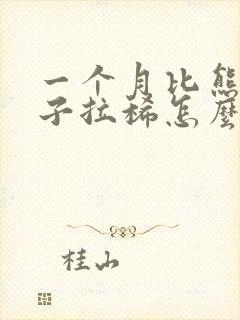 一个月比熊
子拉稀怎麽
桂山